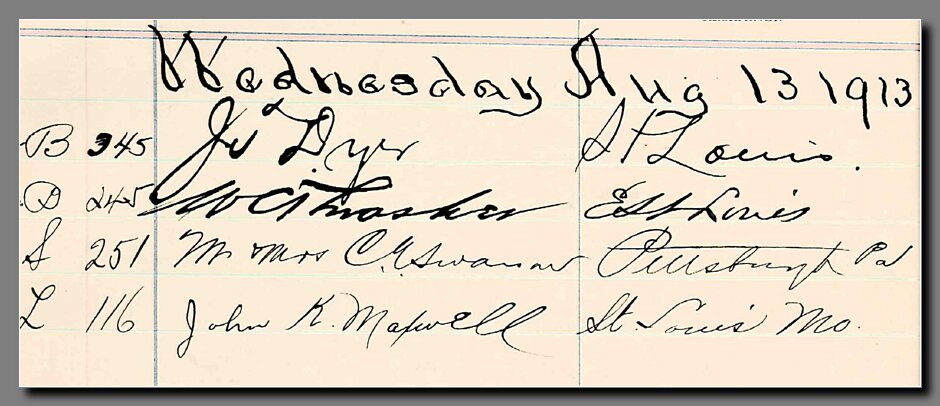 Wednesday Aug 13 1913
B 345 Jos. Dyer St. Louis.
D 245 W C Thrasher E St Louis
S 251 Mr & Mrs C. A. Swanson Pittsburgh Pa
L 116 John K. Maxwell St. Louis Mo.